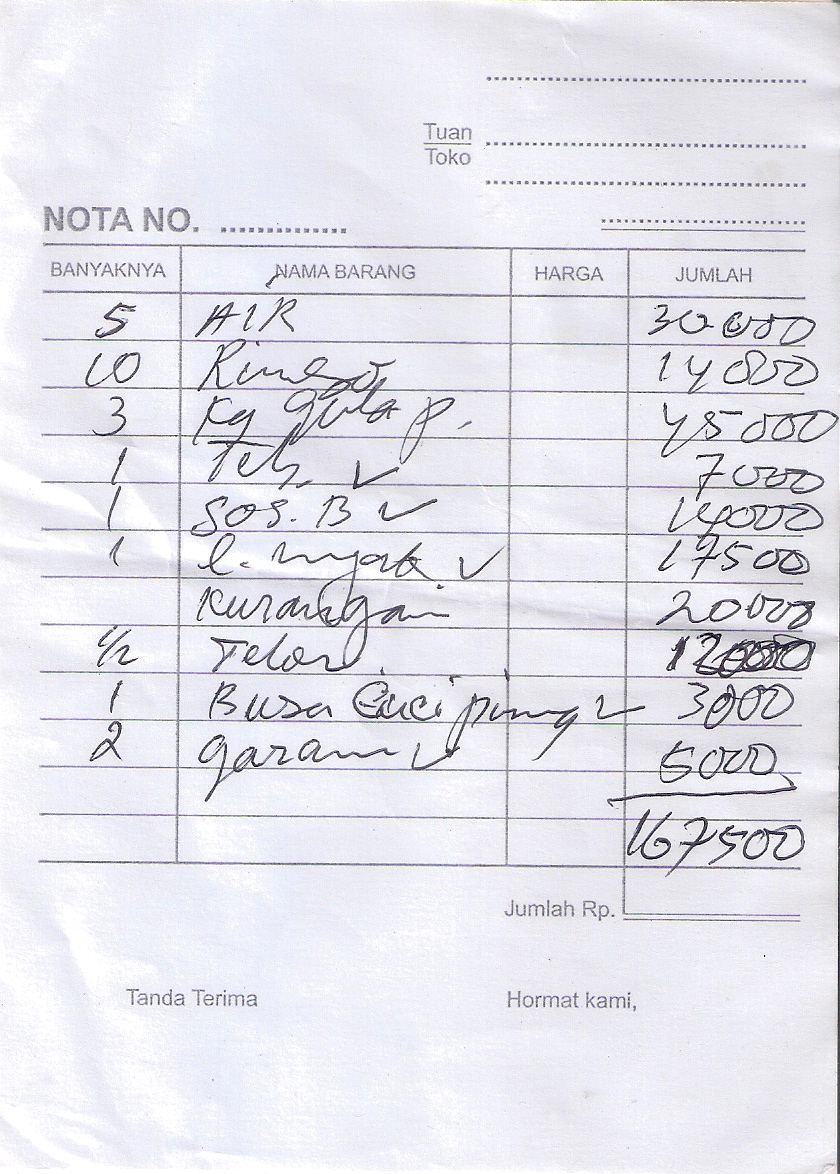 Tuan
Toko
NOTA NO. ..............
BANYAKNYA NAMA BARANG HARGA JUMLAH
5 AIR 30000
10 Rinso 14000
3 Kg gula p. 45000
1 Teh ✓ 7000
1 Sos. B ✓ 14000
1 ✓ 17500
Kurangan 20000
1/2 Telor 12000
1 Busa Cuci piring ✓ 3000
2 garam ✓ 5000
167500
Jumlah Rp.
Tanda Terima Hormat kami,